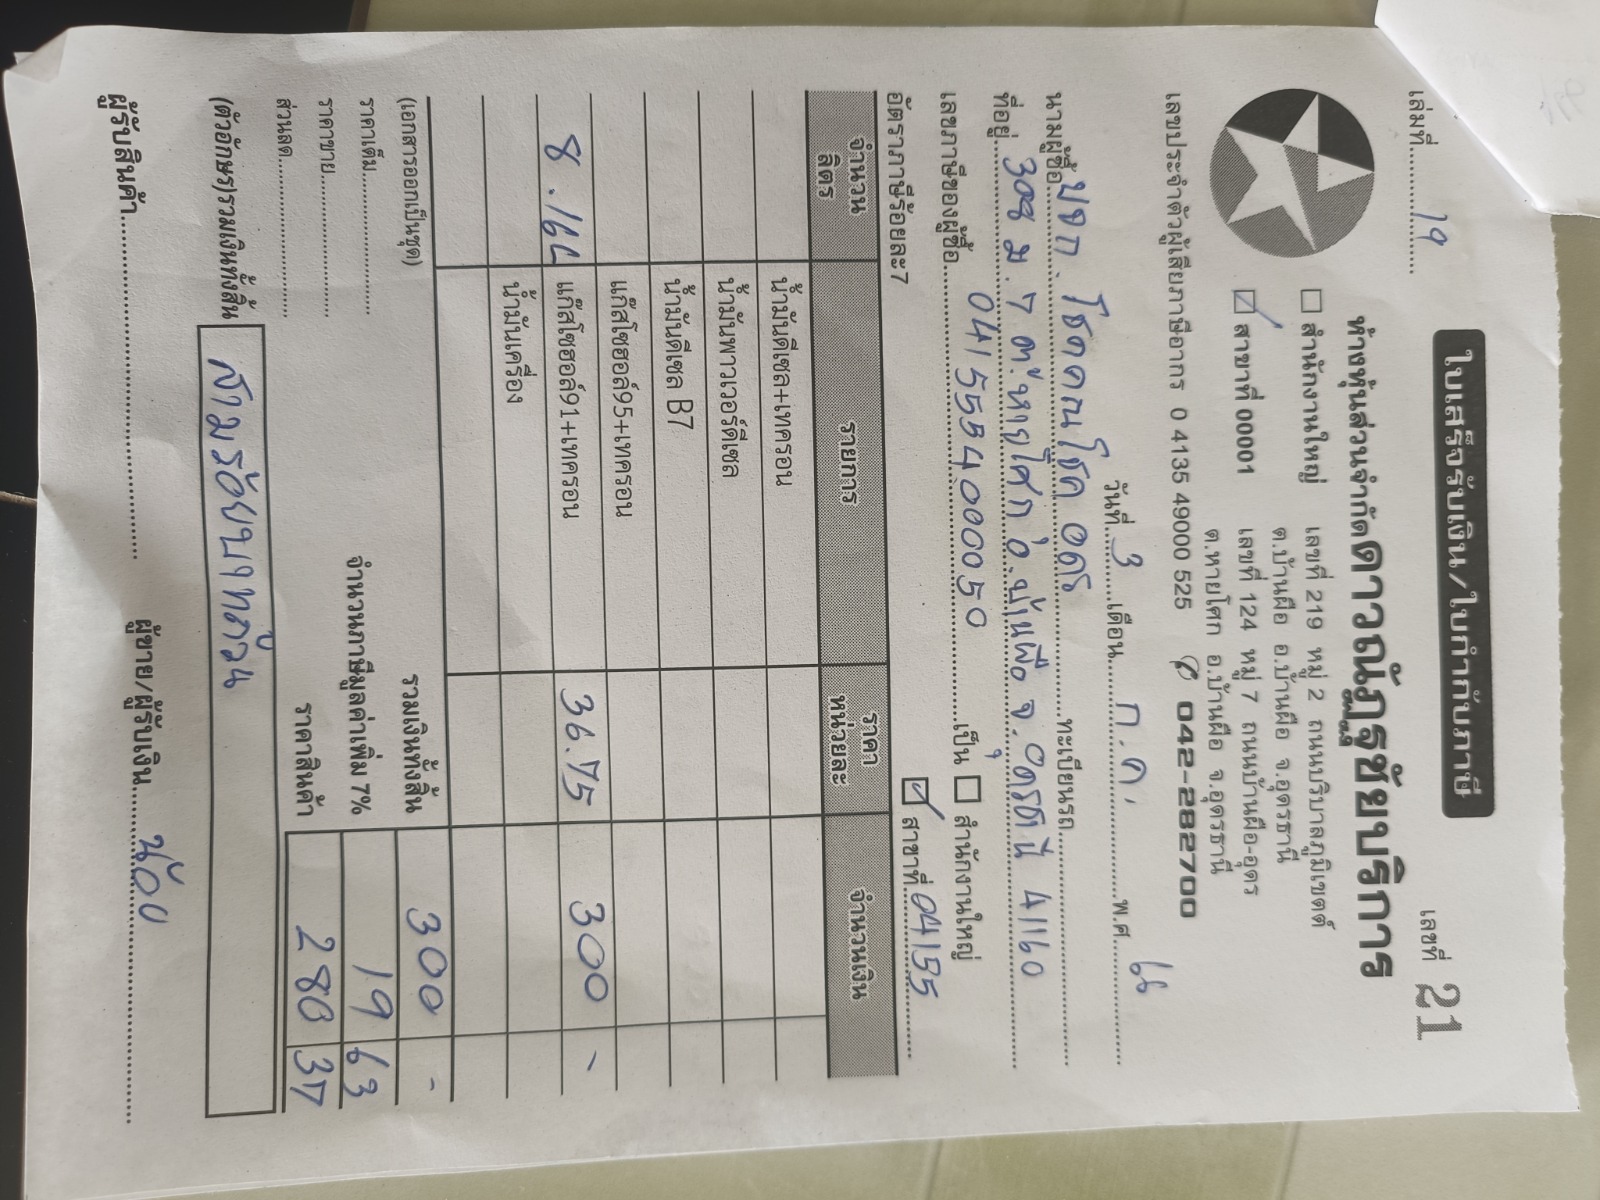 เล่มที่ 19
ใบเสร็จรับเงิน/ใบกำกับภาษี
เลขที่ 21
ห้างหุ้นส่วนจำกัดดาวณัฏฐชัยบริการ
☐ สำนักงานใหญ่ เลขที่ 219 หมู่ 2 ถนนบริบาลภูมิเขตต์
ต.บ้านผือ อ.บ้านผือ จ.อุดรธานี
☑ สาขาที่ 00001 เลขที่ 124 หมู่ 7 ถนนบ้านผือ-อุดร
ต.หายโศก อ.บ้านผือ จ.อุดรธานี
เลขประจำตัวผู้เสียภาษีอากร 0 4135 49000 525 ✆ 042-282700
วันที่ 3 เดือน ก.ค. พ.ศ. 66
นามผู้ซื้อ บจก. โชคคณโชค อุดร ทะเบียนรถ
ที่อยู่ 308 ม.7 ต.หายโศก อ.บ้านผือ จ.อุดรธานี 41160
เลขภาษีของผู้ซื้อ 0415554000050 เป็น ☐ สำนักงานใหญ่
อัตราภาษีร้อยละ7 ☑ สาขาที่ 04155
จำนวนลิตร รายการ ราคาหน่วยละ จำนวนเงิน
น้ำมันดีเซล+เทครอน
น้ำมันพาวเวอร์ดีเซล
น้ำมันดีเซล B7
แก๊สโซฮอล์95+เทครอน
8.16L แก๊สโซฮอล์91+เทครอน 36.75 300 -
น้ำมันเครื่อง
(เอกสารออกเป็นชุด) รวมเงินทั้งสิ้น 300 -
ราคาเต็ม จำนวนภาษีมูลค่าเพิ่ม 7% 19 63
ราคาขาย
ส่วนลด ราคาสินค้า 280 37
(ตัวอักษร)รวมเงินทั้งสิ้น สามร้อยบาทถ้วน
ผู้รับสินค้า ผู้ขาย/ผู้รับเงิน น้อย